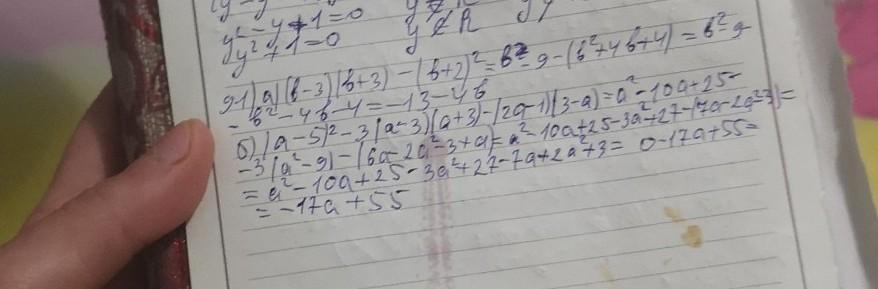 y² - y + 1 = 0
y² + 1 = 0 y ∉ R
9-1) а) (b-3)(b+3) - (b+2)² = b² - 9 - (b²+4b+4) = b² - 9
- b² - 4b - 4 = -13 - 4b
б) (a-5)² - 3(a-3)(a+3) - (2a-1)(3-a) = a² - 10a + 25 -
- 3(a²-9) - (6a - 2a² - 3 + a) = a² - 10a + 25 - 3a² + 27 - (7a - 2a² - 3) =
= a² - 10a + 25 - 3a² + 27 - 7a + 2a² + 3 = 0 - 17a + 55 =
= -17a + 55